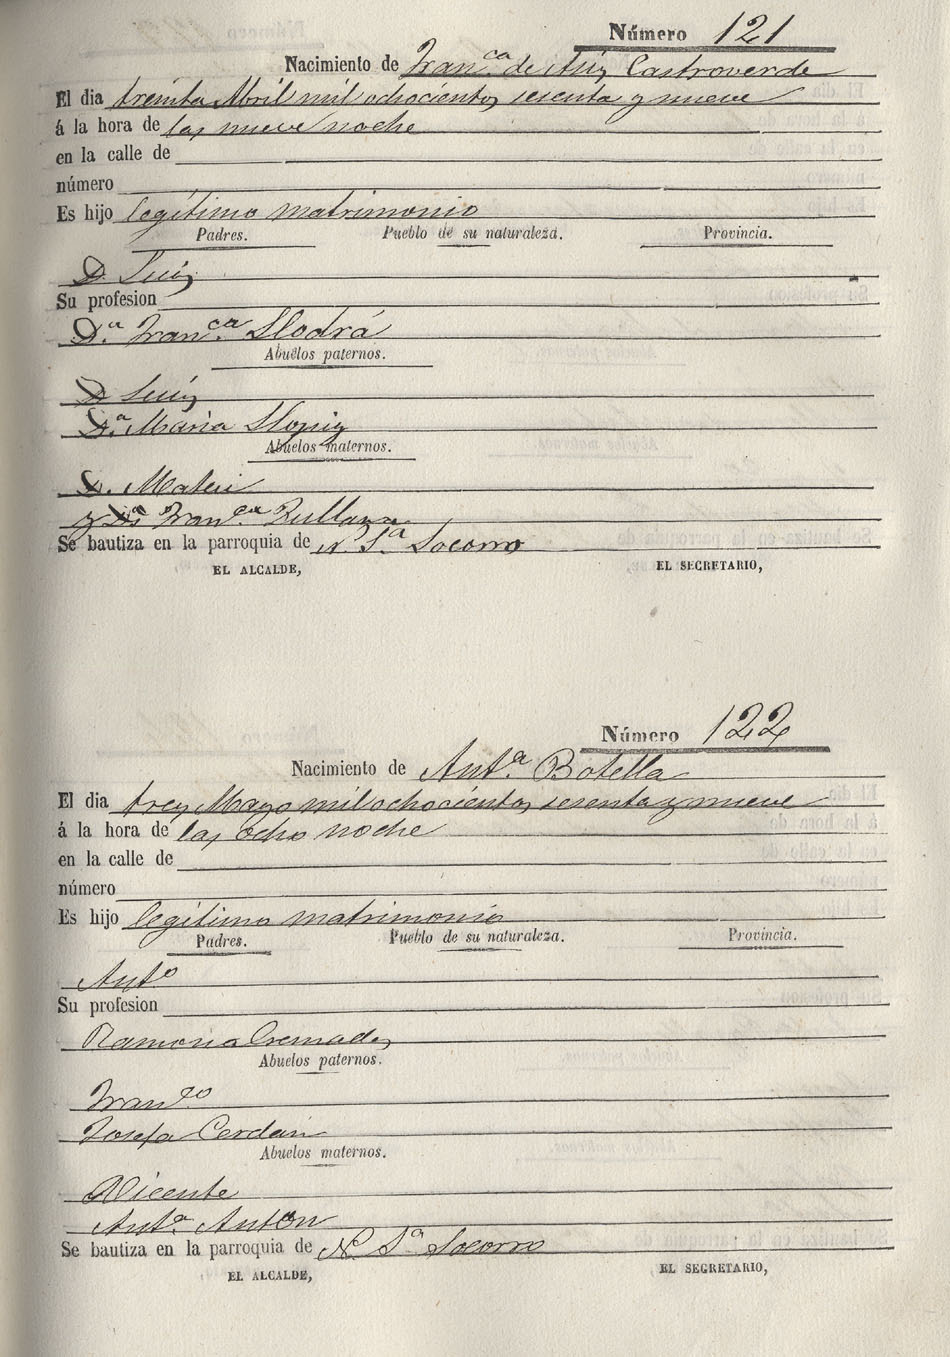 Número 121
Nacimiento de Fran.ca de Asis Castroverde
El dia treinta Abril mil ochocientos sesenta y nueve
á la hora de las nueve noche
en la calle de
número
Es hijo legítimo matrimonio
Padres. Pueblo de su naturaleza. Provincia.
D. Luis
Su profesion
D.a Fran.ca Llodrá
Abuelos paternos.
D Luis
D.a Maria Llopis
Abuelos maternos.
D. Mateu
y Da Fran.ca
Se bautiza en la parroquia de N. S.a Socorro
EL ALCALDE, EL SECRETARIO,
Número 122
Nacimiento de Ant.a Botella
El dia tres Mayo mil ochocientos sesenta y nueve
á la hora de las ocho noche
en la calle de
número
Es hijo legítimo matrimonio
Padres. Pueblo de su naturaleza. Provincia.
Anto
Su profesion
Ramona Cremades
Abuelos paternos.
Franco
Josefa Cerdán
Abuelos maternos.
Vicente
Ant.a Antón
Se bautiza en la parroquia de N. S.a Socorro
EL ALCALDE, EL SECRETARIO,